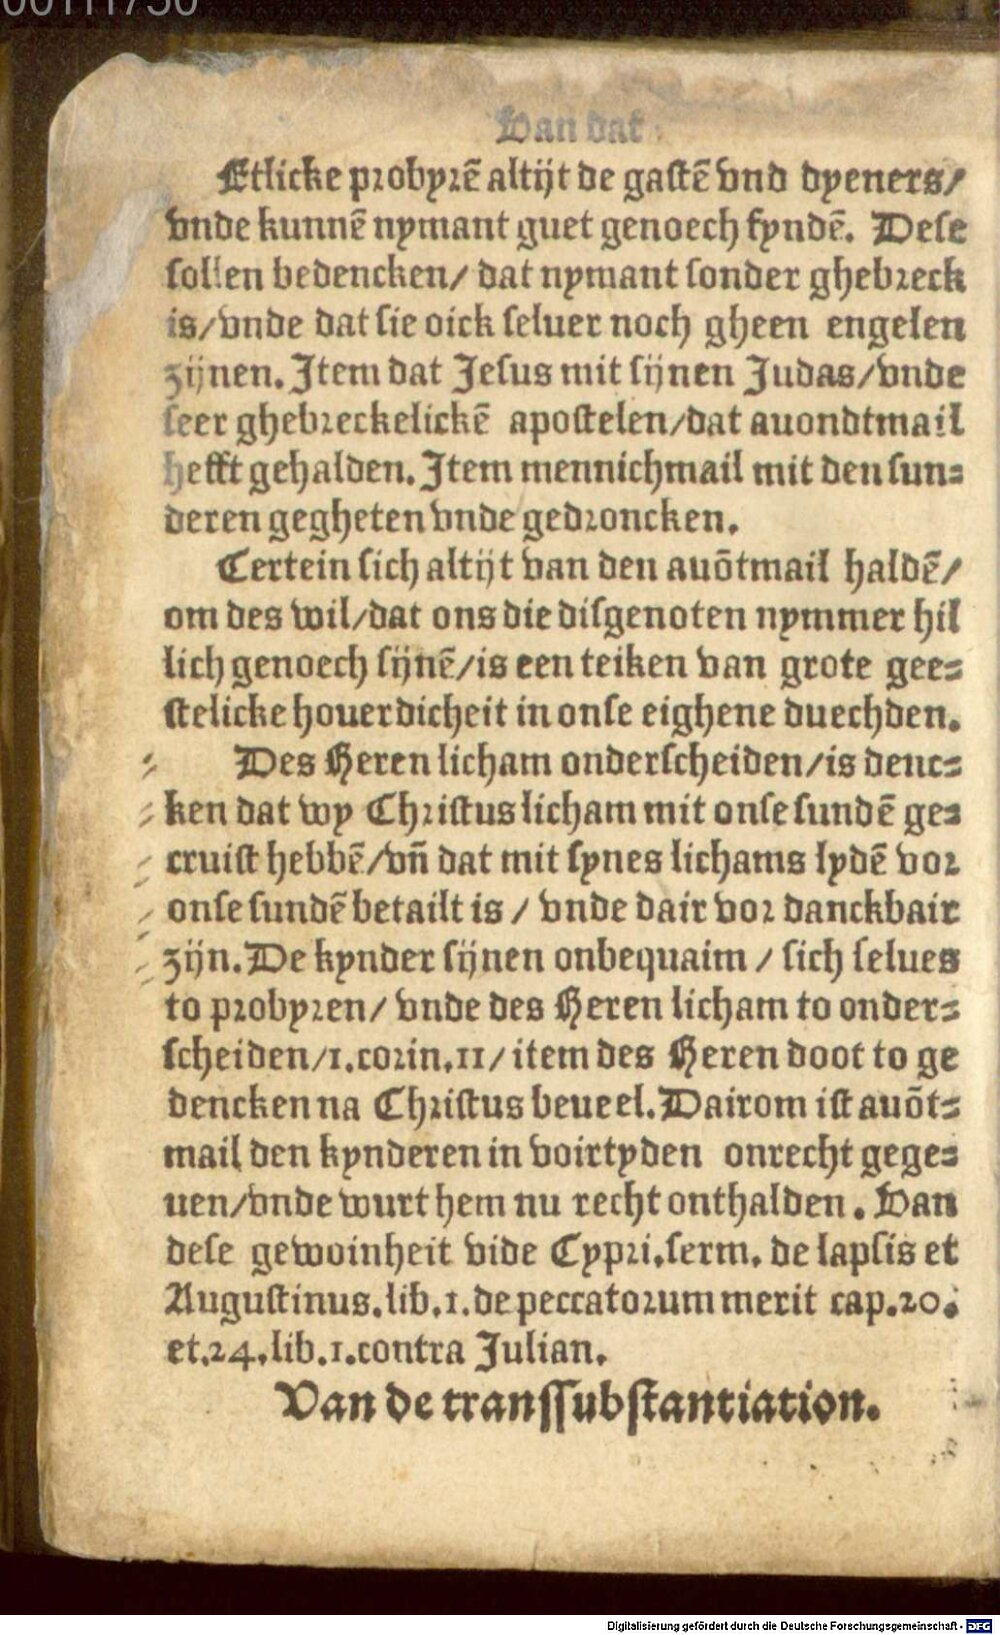 00111750
Van dat
Etlicke probyrē altijt de gastē vnd dyeners/
vnde kunnē nymant guet genoech fyndē. Dese
sollen bedencken/ dat nymant sonder ghebreck
is/vnde dat sie oick seluer noch gheen engelen
zijnen. Item dat Jesus mit sijnen Judas/vnde
seer ghebreckelickē apostelen/dat auondtmail
hefft gehalden. Item mennichmail mit den sun-
deren gegheten vnde gedroncken.
Certein sich altijt van den auōtmail haldē/
om des wil/dat ons die disgenoten nymmer hil
lich genoech sijnē/is een teiken van grote gee-
stelicke houerdicheit in onse eighene duechden.
Des Heren licham onderscheiden/is denc-
ken dat wy Christus licham mit onse sundē ge-
cruist hebbē/vn̄ dat mit synes lichams lydē vor
onse sundē betailt is / vnde dair vor danckbair
zijn. De kynder sijnen onbequaim / sich selues
to probyren/ vnde des Heren licham to onder-
scheiden/1.corin.11/ item des Heren doot to ge
dencken na Christus beueel. Dairom ist auōt-
mail den kynderen in voirtyden onrecht gege-
uen/vnde wurt hem nu recht onthalden. Van
dese gewoinheit vide Cypri.serm. de lapsis et
Augustinus.lib.1.de peccatorum merit cap.20.
et.24.lib.1.contra Julian.
Van de transsubstantiation.
Digitalisierung gefördert durch die Deutsche Forschungsgemeinschaft - DFG